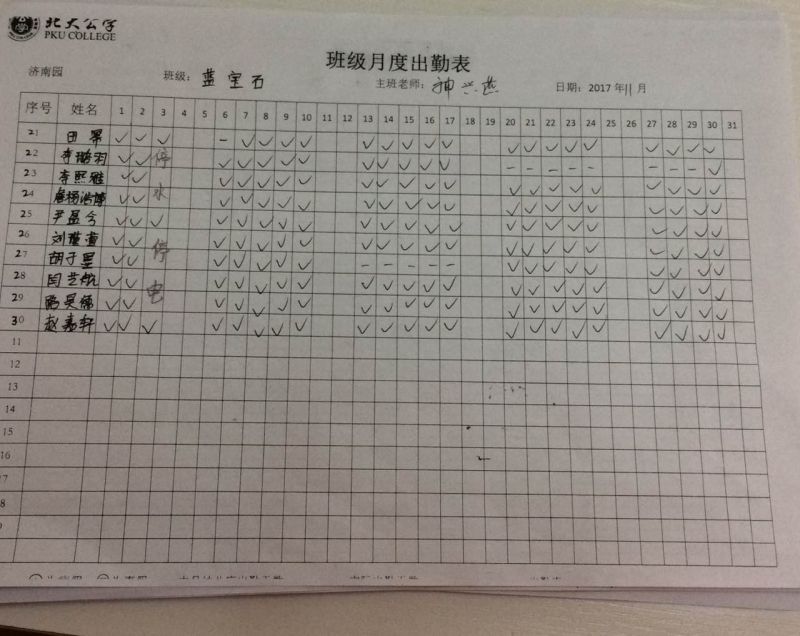 北大公学
PKU COLLEGE
班级月度出勤表
济南园 班级: 蓝宝石 主班老师: 日期: 2017年11月
序号 姓名 1 2 3 4 5 6 7 8 9 10 11 12 13 14 15 16 17 18 19 20 21 22 23 24 25 26 27 28 29 30 31
21 田幂 ✓ ✓ ✓ – ✓ ✓ ✓ ✓ ✓ ✓ ✓ ✓ ✓ ✓ ✓ ✓ ✓ ✓ ✓ ✓ ✓ ✓
22 李鹏羽 ✓ ✓ 停 ✓ ✓ ✓ ✓ ✓ ✓ ✓ ✓ ✓ ✓ – – – – – – – – ✓
23 李熙雅 ✓ ✓ ✓ ✓ ✓ ✓ ✓ ✓ ✓ ✓ ✓ ✓ ✓ ✓ ✓ ✓ ✓ ✓ ✓ ✓ ✓
24 水 ✓ ✓ ✓ ✓ ✓ ✓ ✓ ✓ ✓ ✓ ✓ ✓ ✓ ✓ ✓ ✓ ✓ ✓ ✓
25 尹盈今 ✓ ✓ ✓ ✓ ✓ ✓ ✓ ✓ ✓ ✓ ✓ ✓ ✓ ✓ ✓ ✓ ✓ ✓ ✓ ✓ ✓ ✓
26 刘瑾萱 ✓ ✓ 停 ✓ ✓ ✓ ✓ ✓ ✓ ✓ ✓ ✓ ✓ ✓ ✓ ✓ ✓ ✓ ✓ ✓ ✓ ✓
27 胡于墨 ✓ ✓ ✓ ✓ ✓ ✓ ✓ – – – – – ✓ ✓ ✓ ✓ ✓ ✓ ✓ ✓ ✓
28 闫艺航 ✓ ✓ 电 ✓ ✓ ✓ ✓ ✓ ✓ ✓ ✓ ✓ ✓ ✓ ✓ ✓ ✓ ✓ ✓ ✓ ✓ ✓
29 ✓ ✓ ✓ ✓ ✓ ✓ ✓ ✓ ✓ ✓ ✓ ✓ ✓ ✓ ✓ ✓ ✓ ✓ ✓ ✓ ✓
30 赵嘉轩 ✓ ✓ ✓ ✓ ✓ ✓ ✓ ✓ ✓ ✓ ✓ ✓ ✓ ✓ ✓ ✓ ✓ ✓ ✓ ✓ ✓ ✓
11
12
13
14
15
16
7
8
9